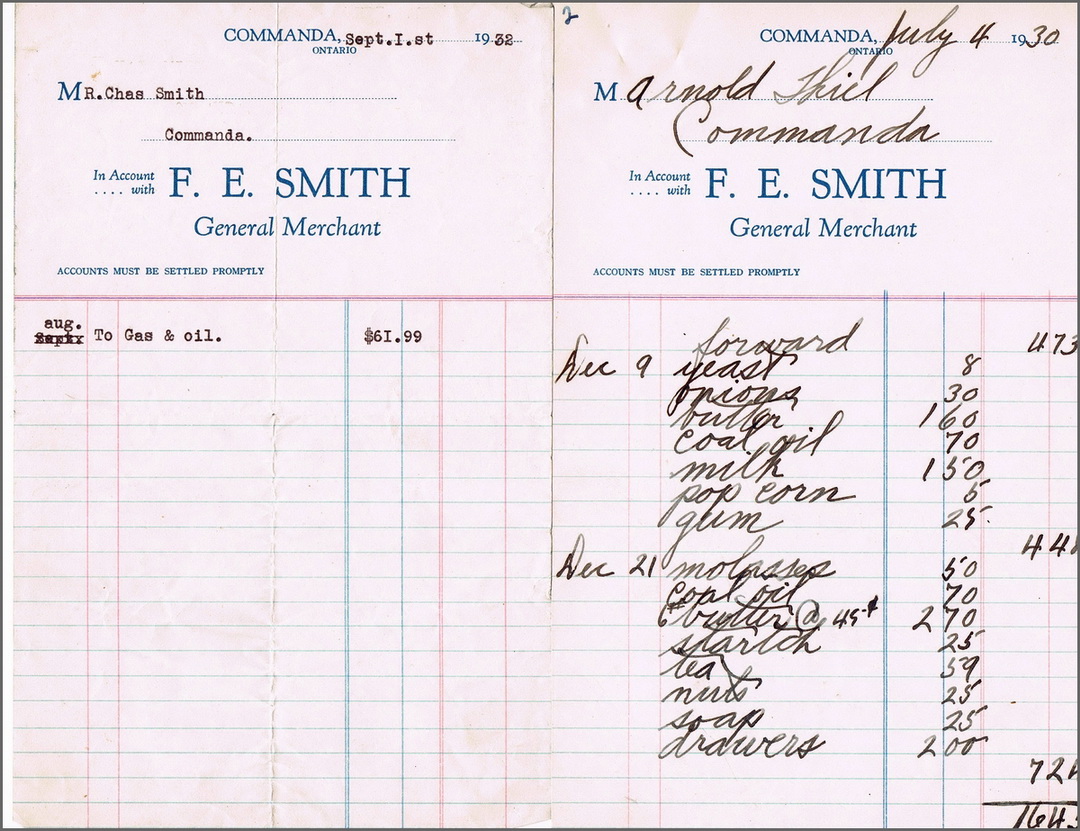 COMMANDA, Sept.I.st 1932
ONTARIO
MR.Chas Smith
Commanda.
In Account
.... with F. E. SMITH
General Merchant
ACCOUNTS MUST BE SETTLED PROMPTLY
aug.
Sept. To Gas & oil. $6I.99
2
COMMANDA, July 4 1930
ONTARIO
M Arnold Thiel
Commanda
In Account
.... with F. E. SMITH
General Merchant
ACCOUNTS MUST BE SETTLED PROMPTLY
forward 473
Dec 9 yeast 8
onions 30
butter 1 60
coal oil 70
milk 1 50
pop corn 5
gum 25
44
Dec 21 molasses 50
coal oil 70
6# butter @ 45¢ 2 70
startch 25
tea 59
nuts 25
soap 25
drawers 2 00
72
1643